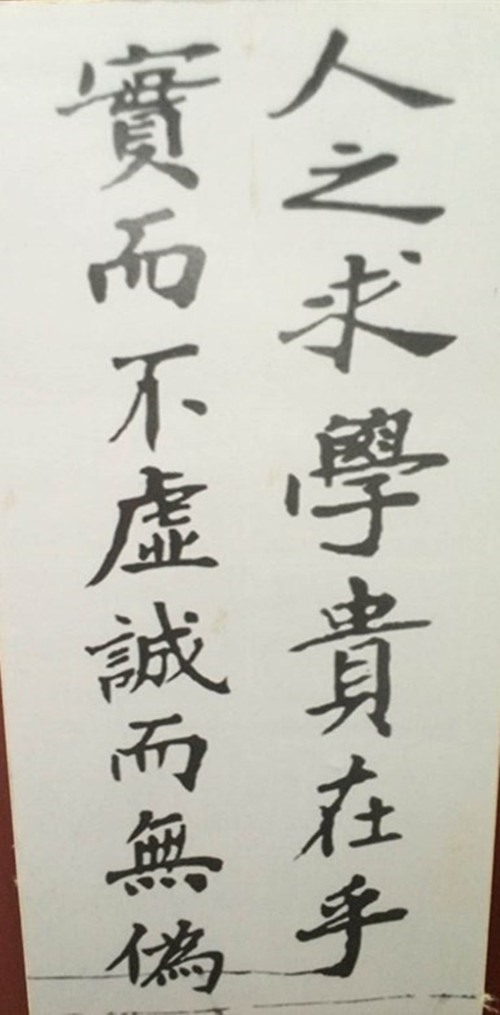 人之求學貴在乎
實而不虛誠而無偽